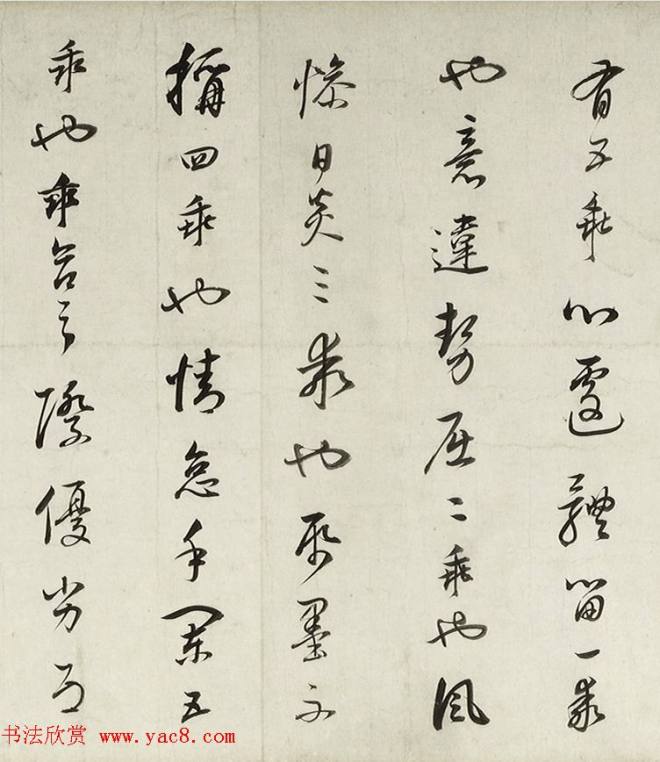 有五乖心遽體留一乖
也意違勢屈二乖也風
燥日炎三乖也紙墨不
稱四乖也情怠手闌五
乖也乖合之際優劣互
书法欣赏 www.yac8.com